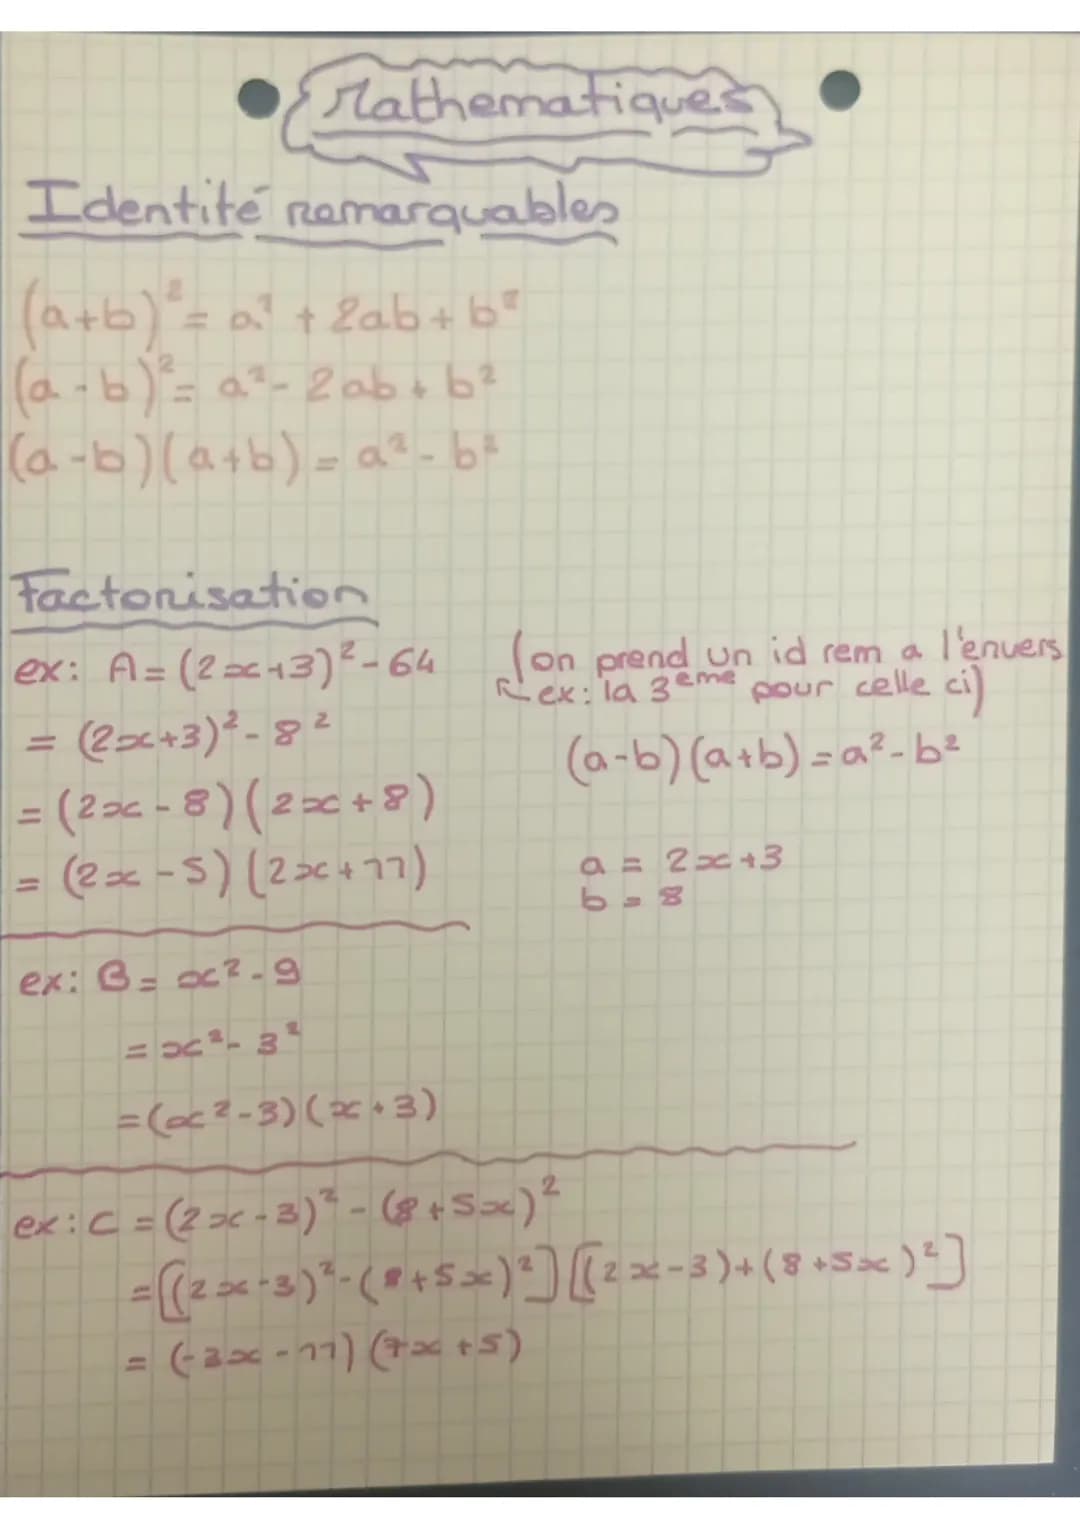 Mathematiques
Identité remarquables
(a+b)² = a² + 2ab + b²
(a - b)² = a² - 2ab + b²
(a - b)(a+b) = a² - b²
Factorisation
ex: A = (2x+3)² - 64
(on prend un id rem a l'envers
ex: la 3eme pour celle ci)
= (2x+3)² - 8²
(a-b)(a+b) = a² - b²
= (2x - 8)(2x + 8)
= (2x - 5)(2x + 11)
a = 2x+3
b = 8
ex: B = x² - 9
= x² - 3²
= (x² - 3)(x + 3)
ex: C = (2x - 3)² - (8 + 5x)²
= [(2x - 3)² - (8 + 5x)²][(2x - 3) + (8 + 5x)²]
= (-3x - 11)(7x + 5)